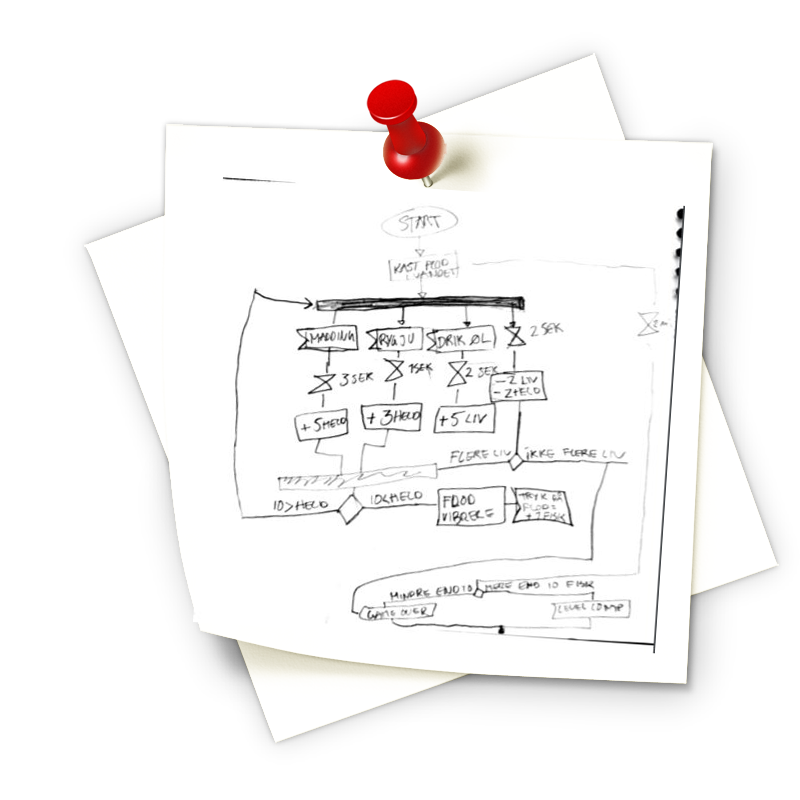 START
KAST FLOD
I VANDET
MADDING
RYG JU
DRIK ØL
2 SEK
3 SEK
1SEK
2 SEK
-2 LIV
-2 HELD
+5 HELD
+3 HELD
+5 LIV
FLERE LIV
IKKE FLERE LIV
10>HELD
10<HELD
FLOD
VIBRERE
TRYK PÅ
FLOD=
+2 FISK
MINDRE END 10
MERE END 10 FISK
GAME OVER
LEVEL COMP